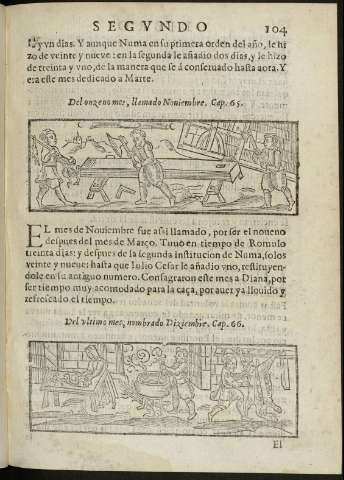 SEGVNDO 104
ta y vn dias. Y aunque Numa en su primera orden del año, le hi
zo de veinte y nueue: en la segunda le añadio dos dias, y le hizo
de treinta y vno, de la manera que se á conseruado hasta aora. Y
era este mes dedicado a Marte.
Del onzeno mes, llamado Nouiembre. Cap. 65.
EL mes de Nouiembre fue assi llamado, por ser el noueno
despues del mes de Março. Tuuo en tiempo de Romulo
treinta dias: y despues de la segunda institucion de Numa, solos
veinte y nueue: hasta que Iulio Cesar le añadio vno, restituyen-
dole en su antiguo numero. Consagraron este mes a Diana, por
ser tiempo muy acomodado para la caça, por auer ya llouido y
refrescado el tiempo.
Del vltimo mes, nombrado Diziembre. Cap. 66.
El